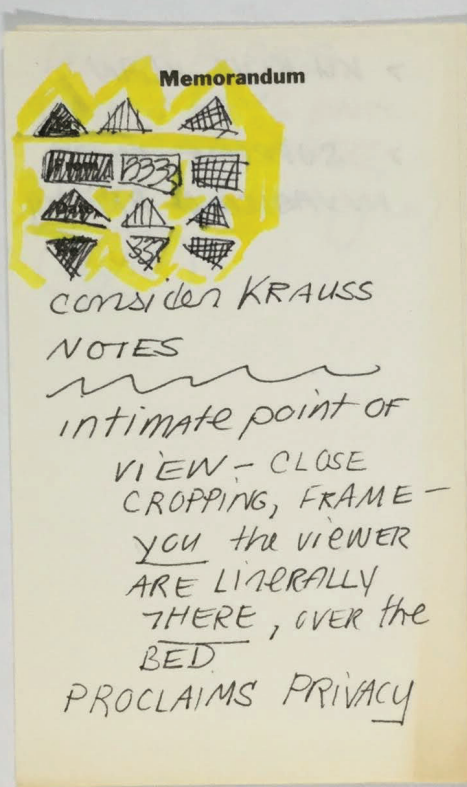 Memorandum
consider KRAUSS
NOTES
intimate point OF
VIEW – CLOSE
CROPPING, FRAME –
you the viewer
ARE LITERALLY
THERE, OVER the
BED
PROCLAIMS PRIVACY